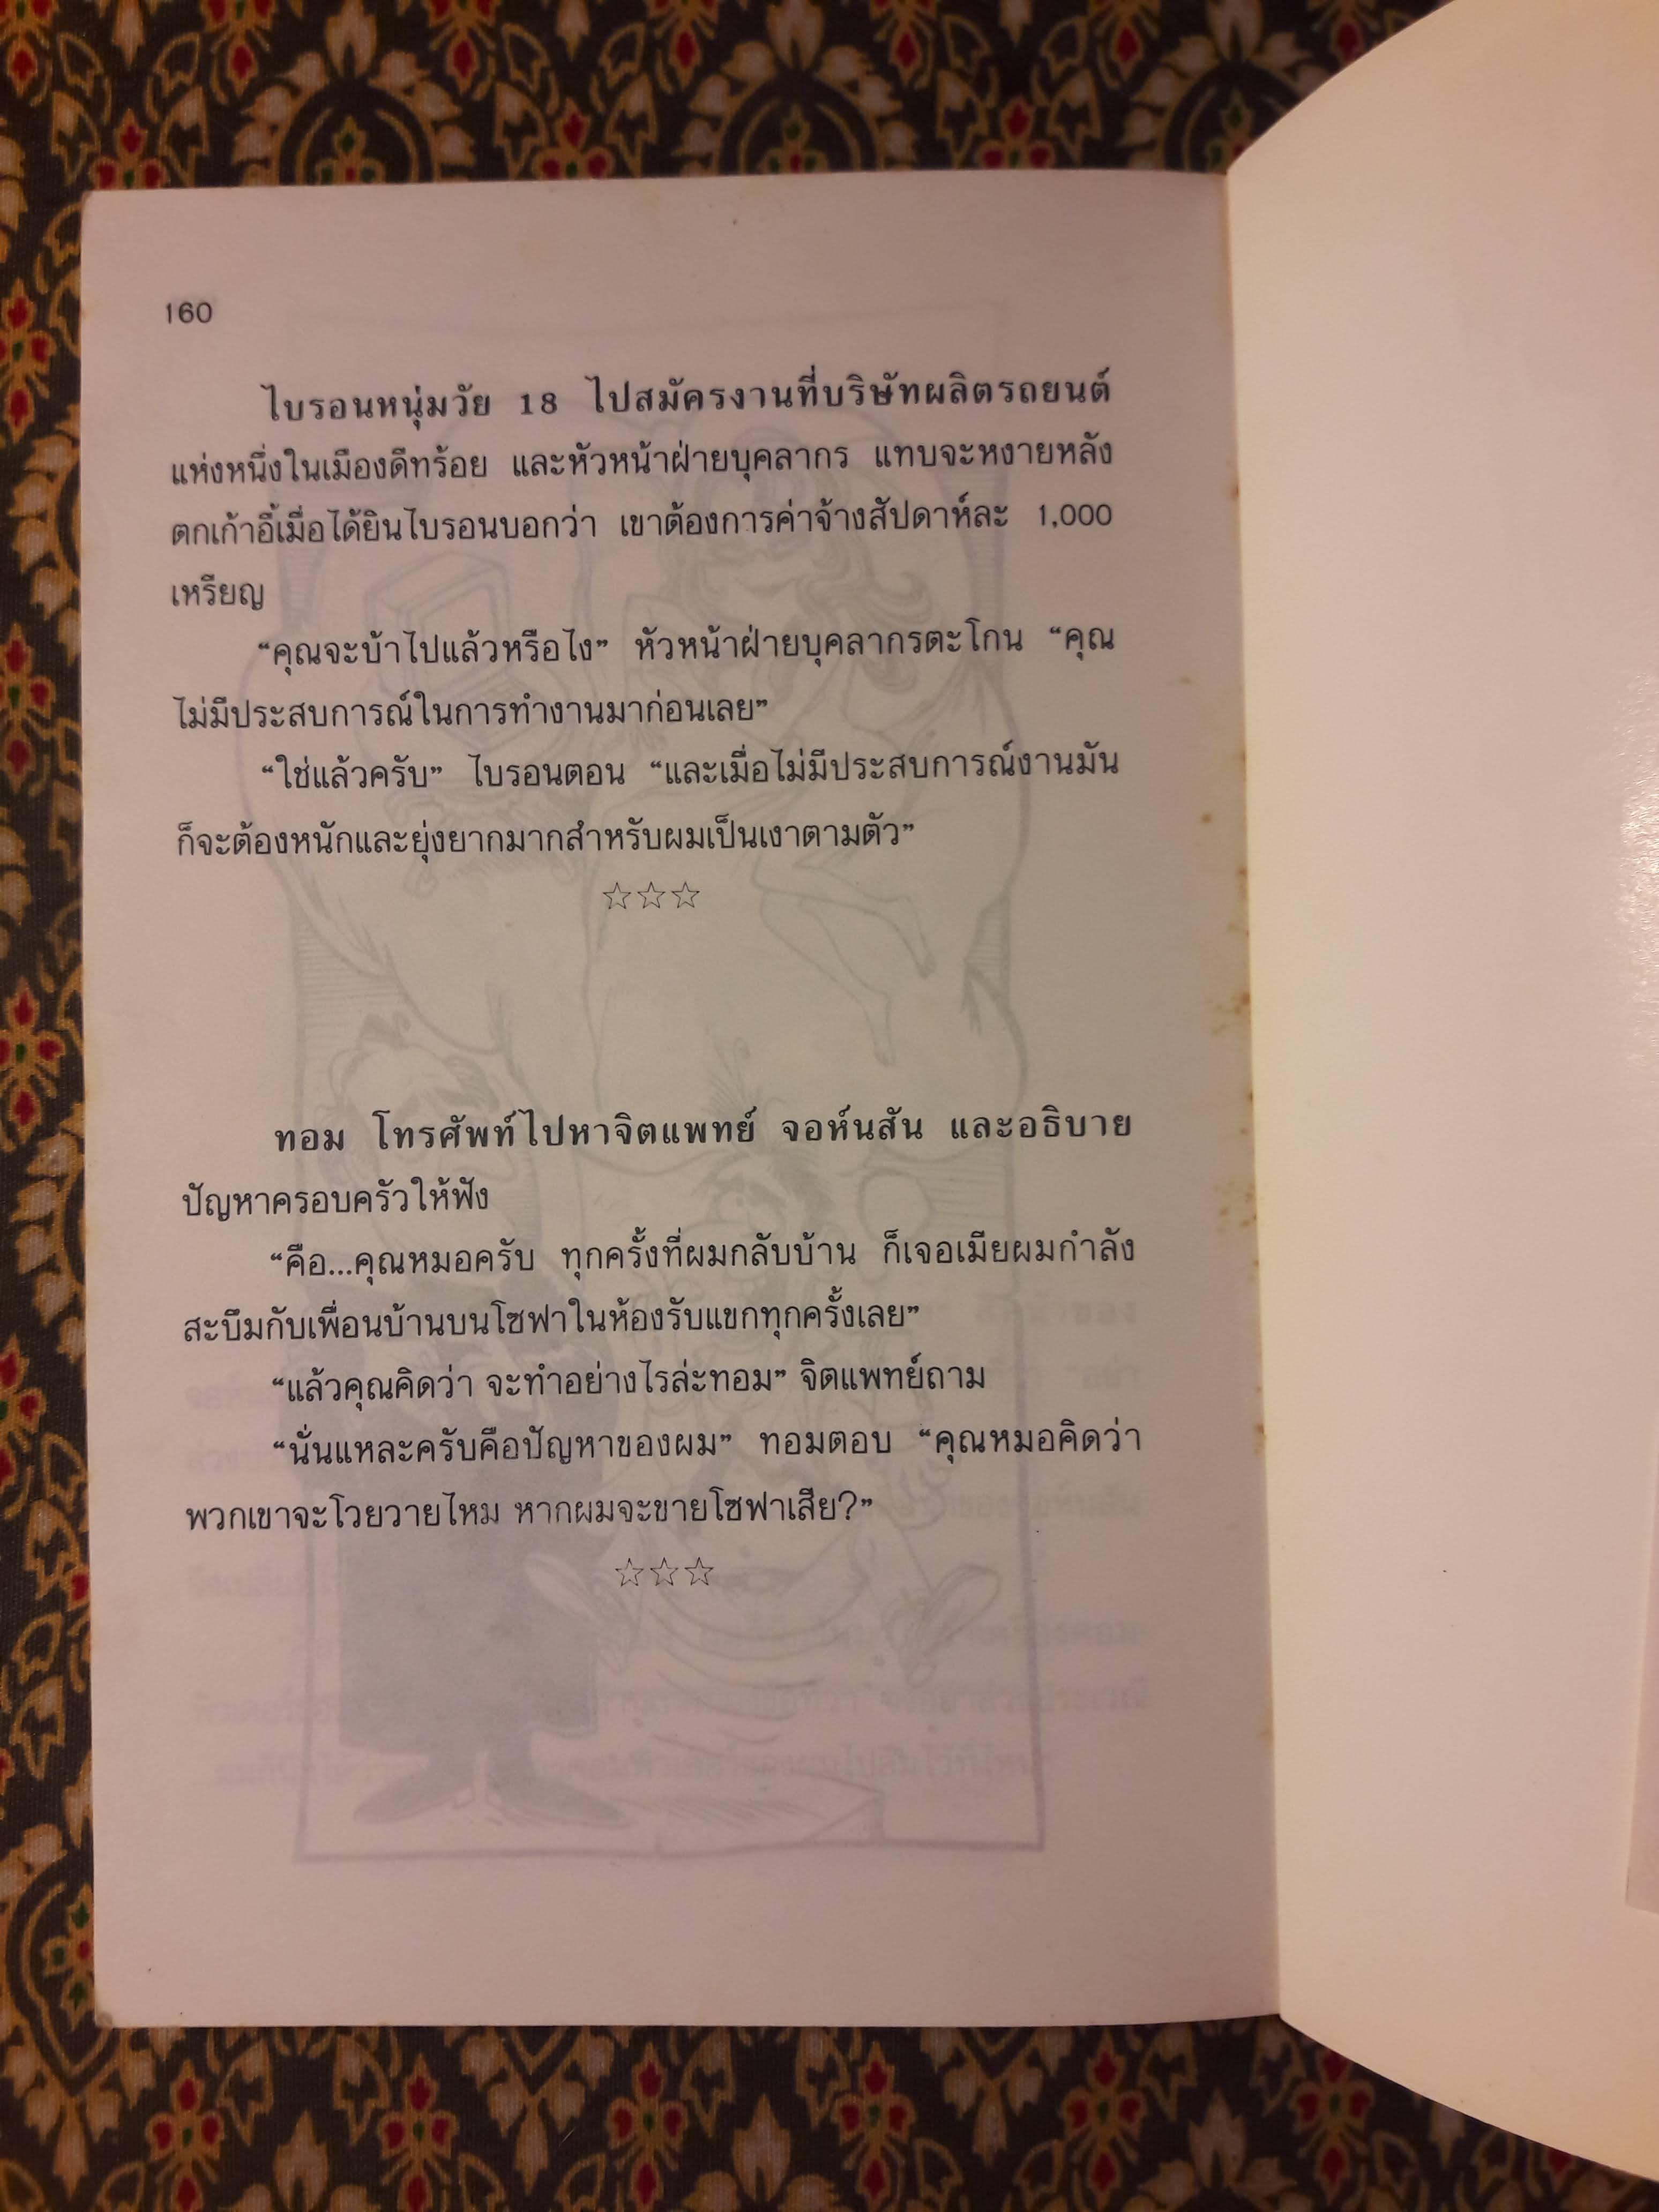 160
ไบรอนหนุ่มวัย 18 ไปสมัครงานที่บริษัทผลิตรถยนต์
แห่งหนึ่งในเมืองดีทร้อย และหัวหน้าฝ่ายบุคลากร แทบจะหงายหลัง
ตกเก้าอี้เมื่อได้ยินไบรอนบอกว่า เขาต้องการค่าจ้างสัปดาห์ละ 1,000
เหรียญ
“คุณจะบ้าไปแล้วหรือไง” หัวหน้าฝ่ายบุคลากรตะโกน “คุณ
ไม่มีประสบการณ์ในการทำงานมาก่อนเลย”
“ใช่แล้วครับ” ไบรอนตอน “และเมื่อไม่มีประสบการณ์งานมัน
ก็จะต้องหนักและยุ่งยากมากสำหรับผมเป็นเงาตามตัว”
☆☆☆
ทอม โทรศัพท์ไปหาจิตแพทย์ จอห์นสัน และอธิบาย
ปัญหาครอบครัวให้ฟัง
“คือ...คุณหมอครับ ทุกครั้งที่ผมกลับบ้าน ก็เจอเมียผมกำลัง
สะบึมกับเพื่อนบ้านบนโซฟาในห้องรับแขกทุกครั้งเลย”
“แล้วคุณคิดว่า จะทำอย่างไรล่ะทอม” จิตแพทย์ถาม
“นั่นแหละครับคือปัญหาของผม” ทอมตอบ “คุณหมอคิดว่า
พวกเขาจะโวยวายไหม หากผมจะขายโซฟาเสีย?”
☆☆☆